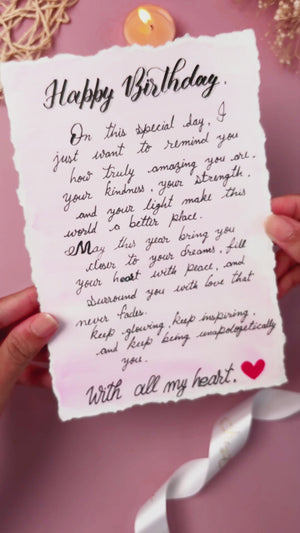 Happy Birthday.
On this special day, I
just want to remind you
how truly amazing you are,
your kindness, your strength,
and your light make this
world a better place.
May this year bring you
closer to your dreams, fill
your heart with peace, and
surround you with love that
never fades.
keep glowing, keep inspiring,
and keep being unapologetically
you.
With all my heart.